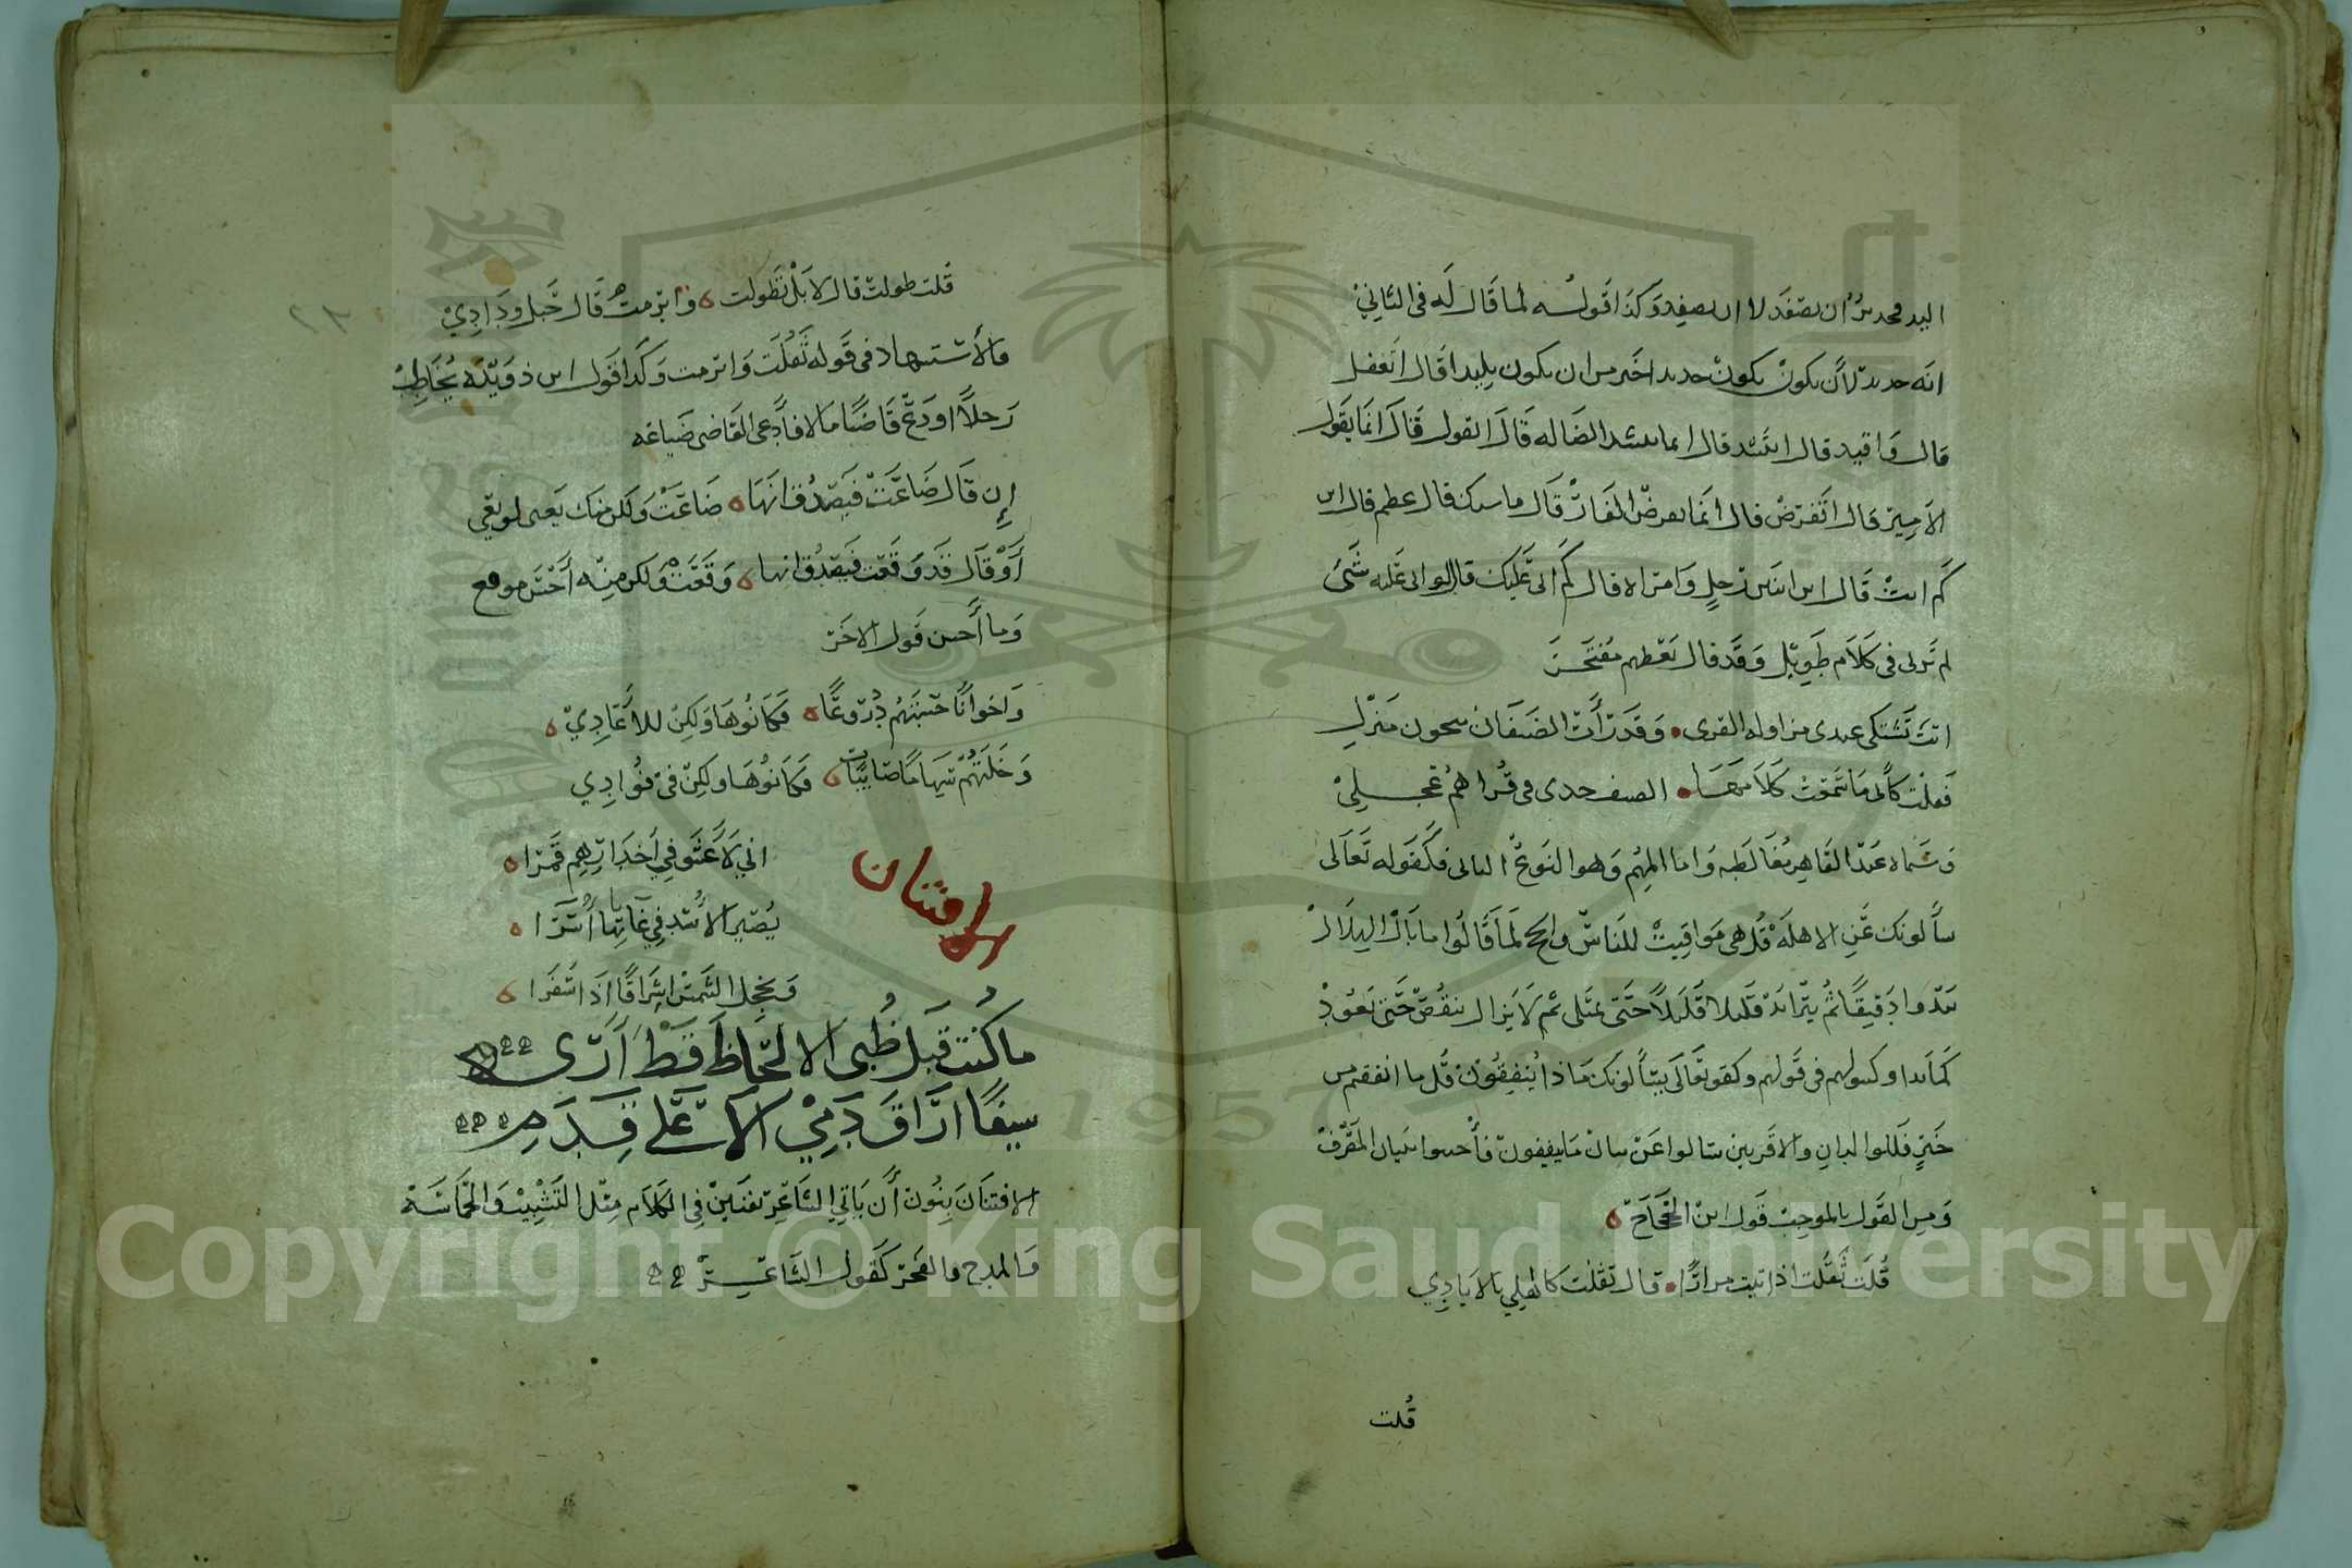 اليد فجدير ان يصفد لا ان يصفد وكذا قوله لما قال له في الثاني
انه حديد لأن يكون حديدا خير من ان يكون بليدا قال اتعقل
قال واقيد قال اتنشد قال انما ينشد الضاله قال اتقول قال انما يقول
الامير قال اتقرض قال انما يقرض الفار قال ما سنك قال عظم قال ابن
كم انت قال ابن اثنين رجل وامراه قال كم اتى عليك قال لو اتى علي شي
لم ترني في كلام طويل وقد قال بعضهم مفتخر
اتت تشتكي عندي مزاولة القرى وقد رأت الضيفان ينحون منزلي
فقلت كأني ما سمعت كلامها الضيف جدي في قراهم عجلي
وسماه عبد القاهر مغالطه واما المهم وهو النوع الثاني فكقوله تعالى
يسألونك عن الاهله قل هي مواقيت للناس والحج لما قالوا ما بال الهلال
يبدوا دقيقا ثم يتزايد قليلا قليلا حتى يمتلي ثم لا يزال ينقص حتى يعود
كما بدا وكسولهم في قولهم وكقوله تعالى يسألونك ماذا ينفقون قل ما انفقتم من
خير فللوالدين والاقربين سالوا عن بيان ما ينفقون فأجيبوا ببيان المصرف
ومن القول بالموجب قول ابن الحجاج
قلت ثقلت اذ اتيت مرارا قال ثقلت كاهلي بالايادي
قلت
قلت طولت قال لا بل تطولت وابرمت قال حبل ودادي
والاستشهاد في قوله ثقلت وابرمت وكذا قول ابن دويده يخاطب
رجلا اودع قاضيا مالا فادعى القاضي ضياعه
إن قال ضاعت فيصدق انها ضاعت ولكن منك يعنى لو تعي
أو قال قد وقعت فيصدق انها وقعت ولكن منه أحسن موقع
وما أحسن قول الاخر
واخوانا حسبتهم دروعا فكانوها ولكن للأعادي
وخلتهم سهاما صايبات فكانوها ولكن في فؤادي
الافتنان
اني لأعشو في أخدارهم قمرا
يصير الأسد في غاباتها أسرا
ويخجل الشمس اشراقا اذا سفرا
ما كنت قبل ظبى الالحاظ قط أرى
سيفا اراق دمي الا على قدم
الافتنان بنون أن ياتي الشاعر بفنين في الكلام مثل التشبيب والحماسة
والمدح والفخر كقول الشاعر